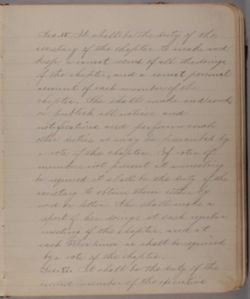 Sec. II. It shall be the duty of the
secretary of the chapter to make and
keep a correct record of all the doings
of the chapter, and a correct personal
account of each member of the
chapter. She shall make and send
or publish all notices and
notifications and perform such
other duties as may be prescribed by
a vote of the chapter. If votes of
members not present at a meeting
be required it shall be the duty of the
secretary to obtain them either by
word or letter. She shall make a
report of her doings at each regular
meeting of the chapter, and at
such other times as shall be required
by a vote of the chapter.
It shall be the duty of the
member of the executive